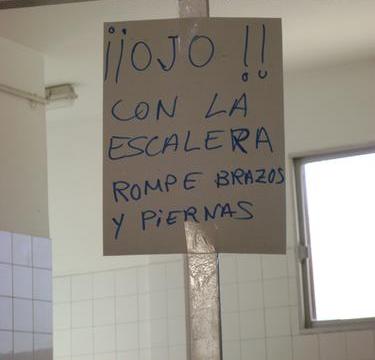 ¡¡OJO!!
CON LA
ESCALERA
ROMPE BRAZOS
Y PiERNAS